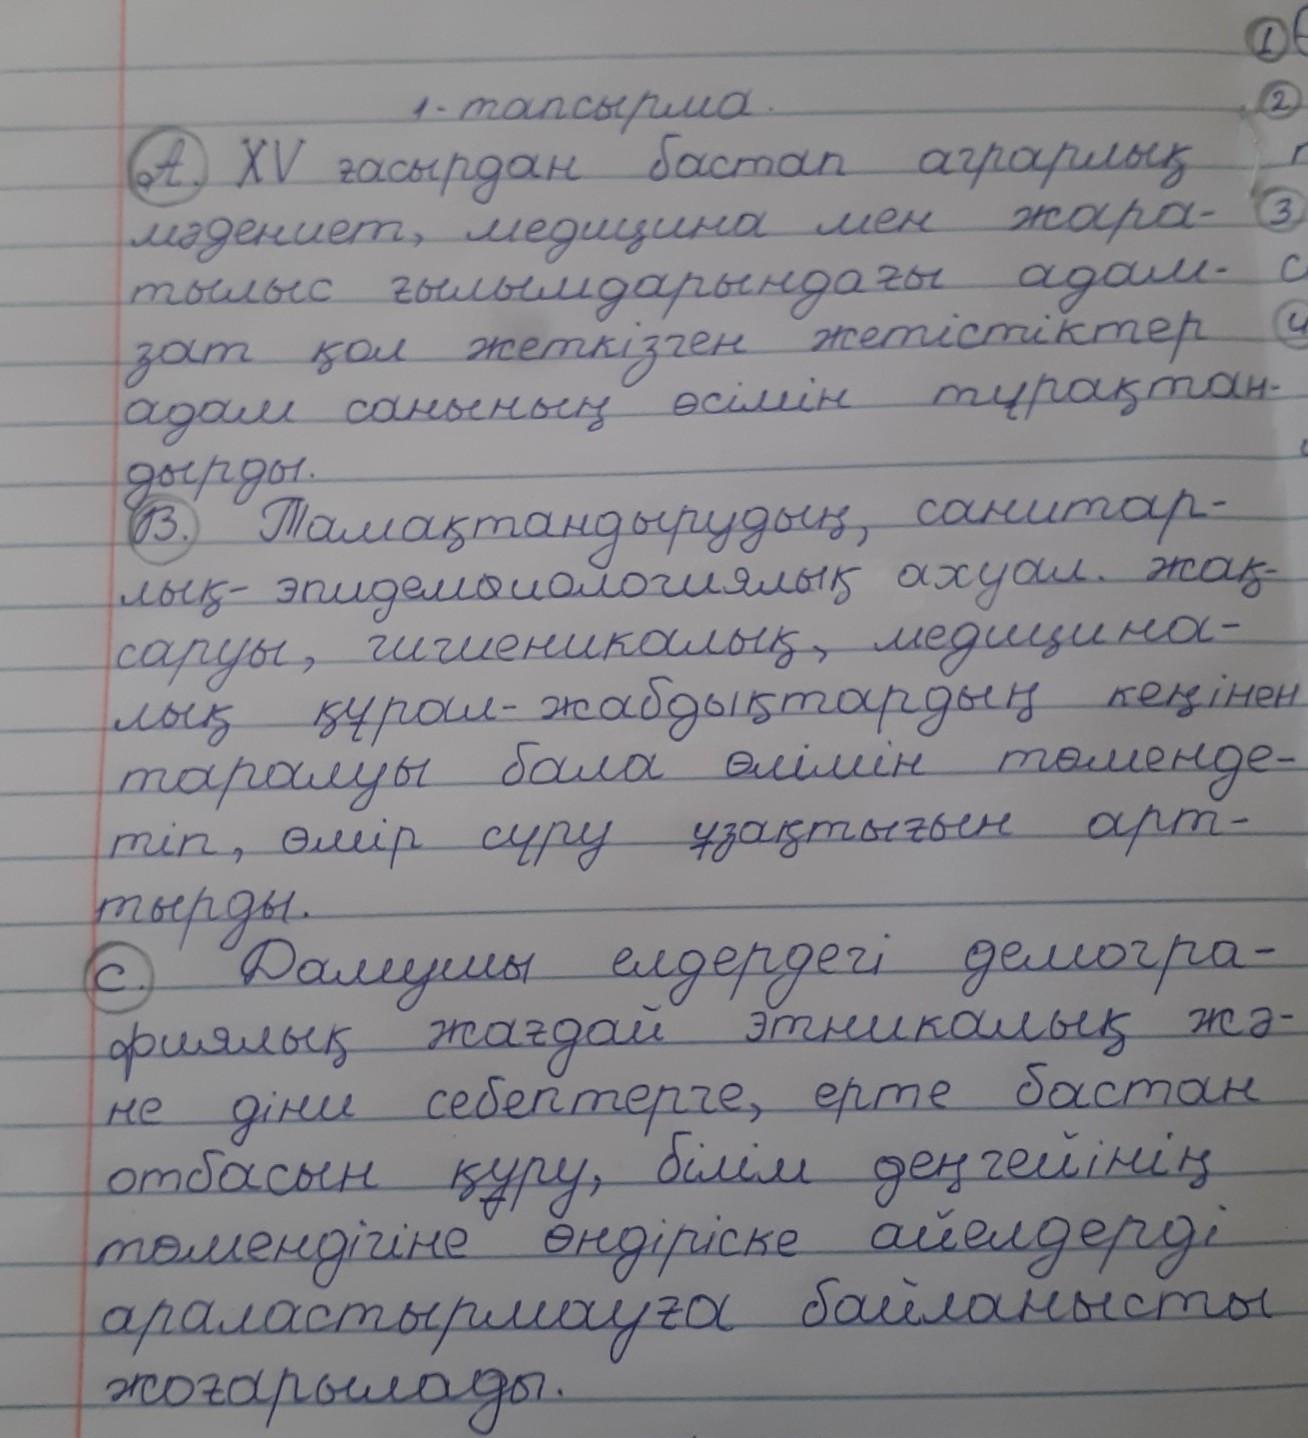 1-тапсырма.
A. XV ғасырдан бастап аграрлық
мәдениет, медицина мен жара-
тылыс ғылымдарындағы адам-
зат қол жеткізген жетістіктер
адам санының өсімін тұрақтан-
дырды.
B. Тамақтандырудың, санитар-
лық-эпидемиологиялық ахуал. жақ-
саруы, гигиеникалық, медицина-
лық құрал-жабдықтардың кеңінен
таралуы бала өлімін төменде-
тіп, өмір сүру ұзақтығын арт-
тырды.
C. Дамушы елдердегі демогра-
фиялық жағдай этникалық жә-
не діни себептерге, ерте бастан
отбасын құру, білім деңгейінің
төмендігіне өндіріске айелдерді
араластырмауға байланысты
жоғарылады.
1
2
3
4